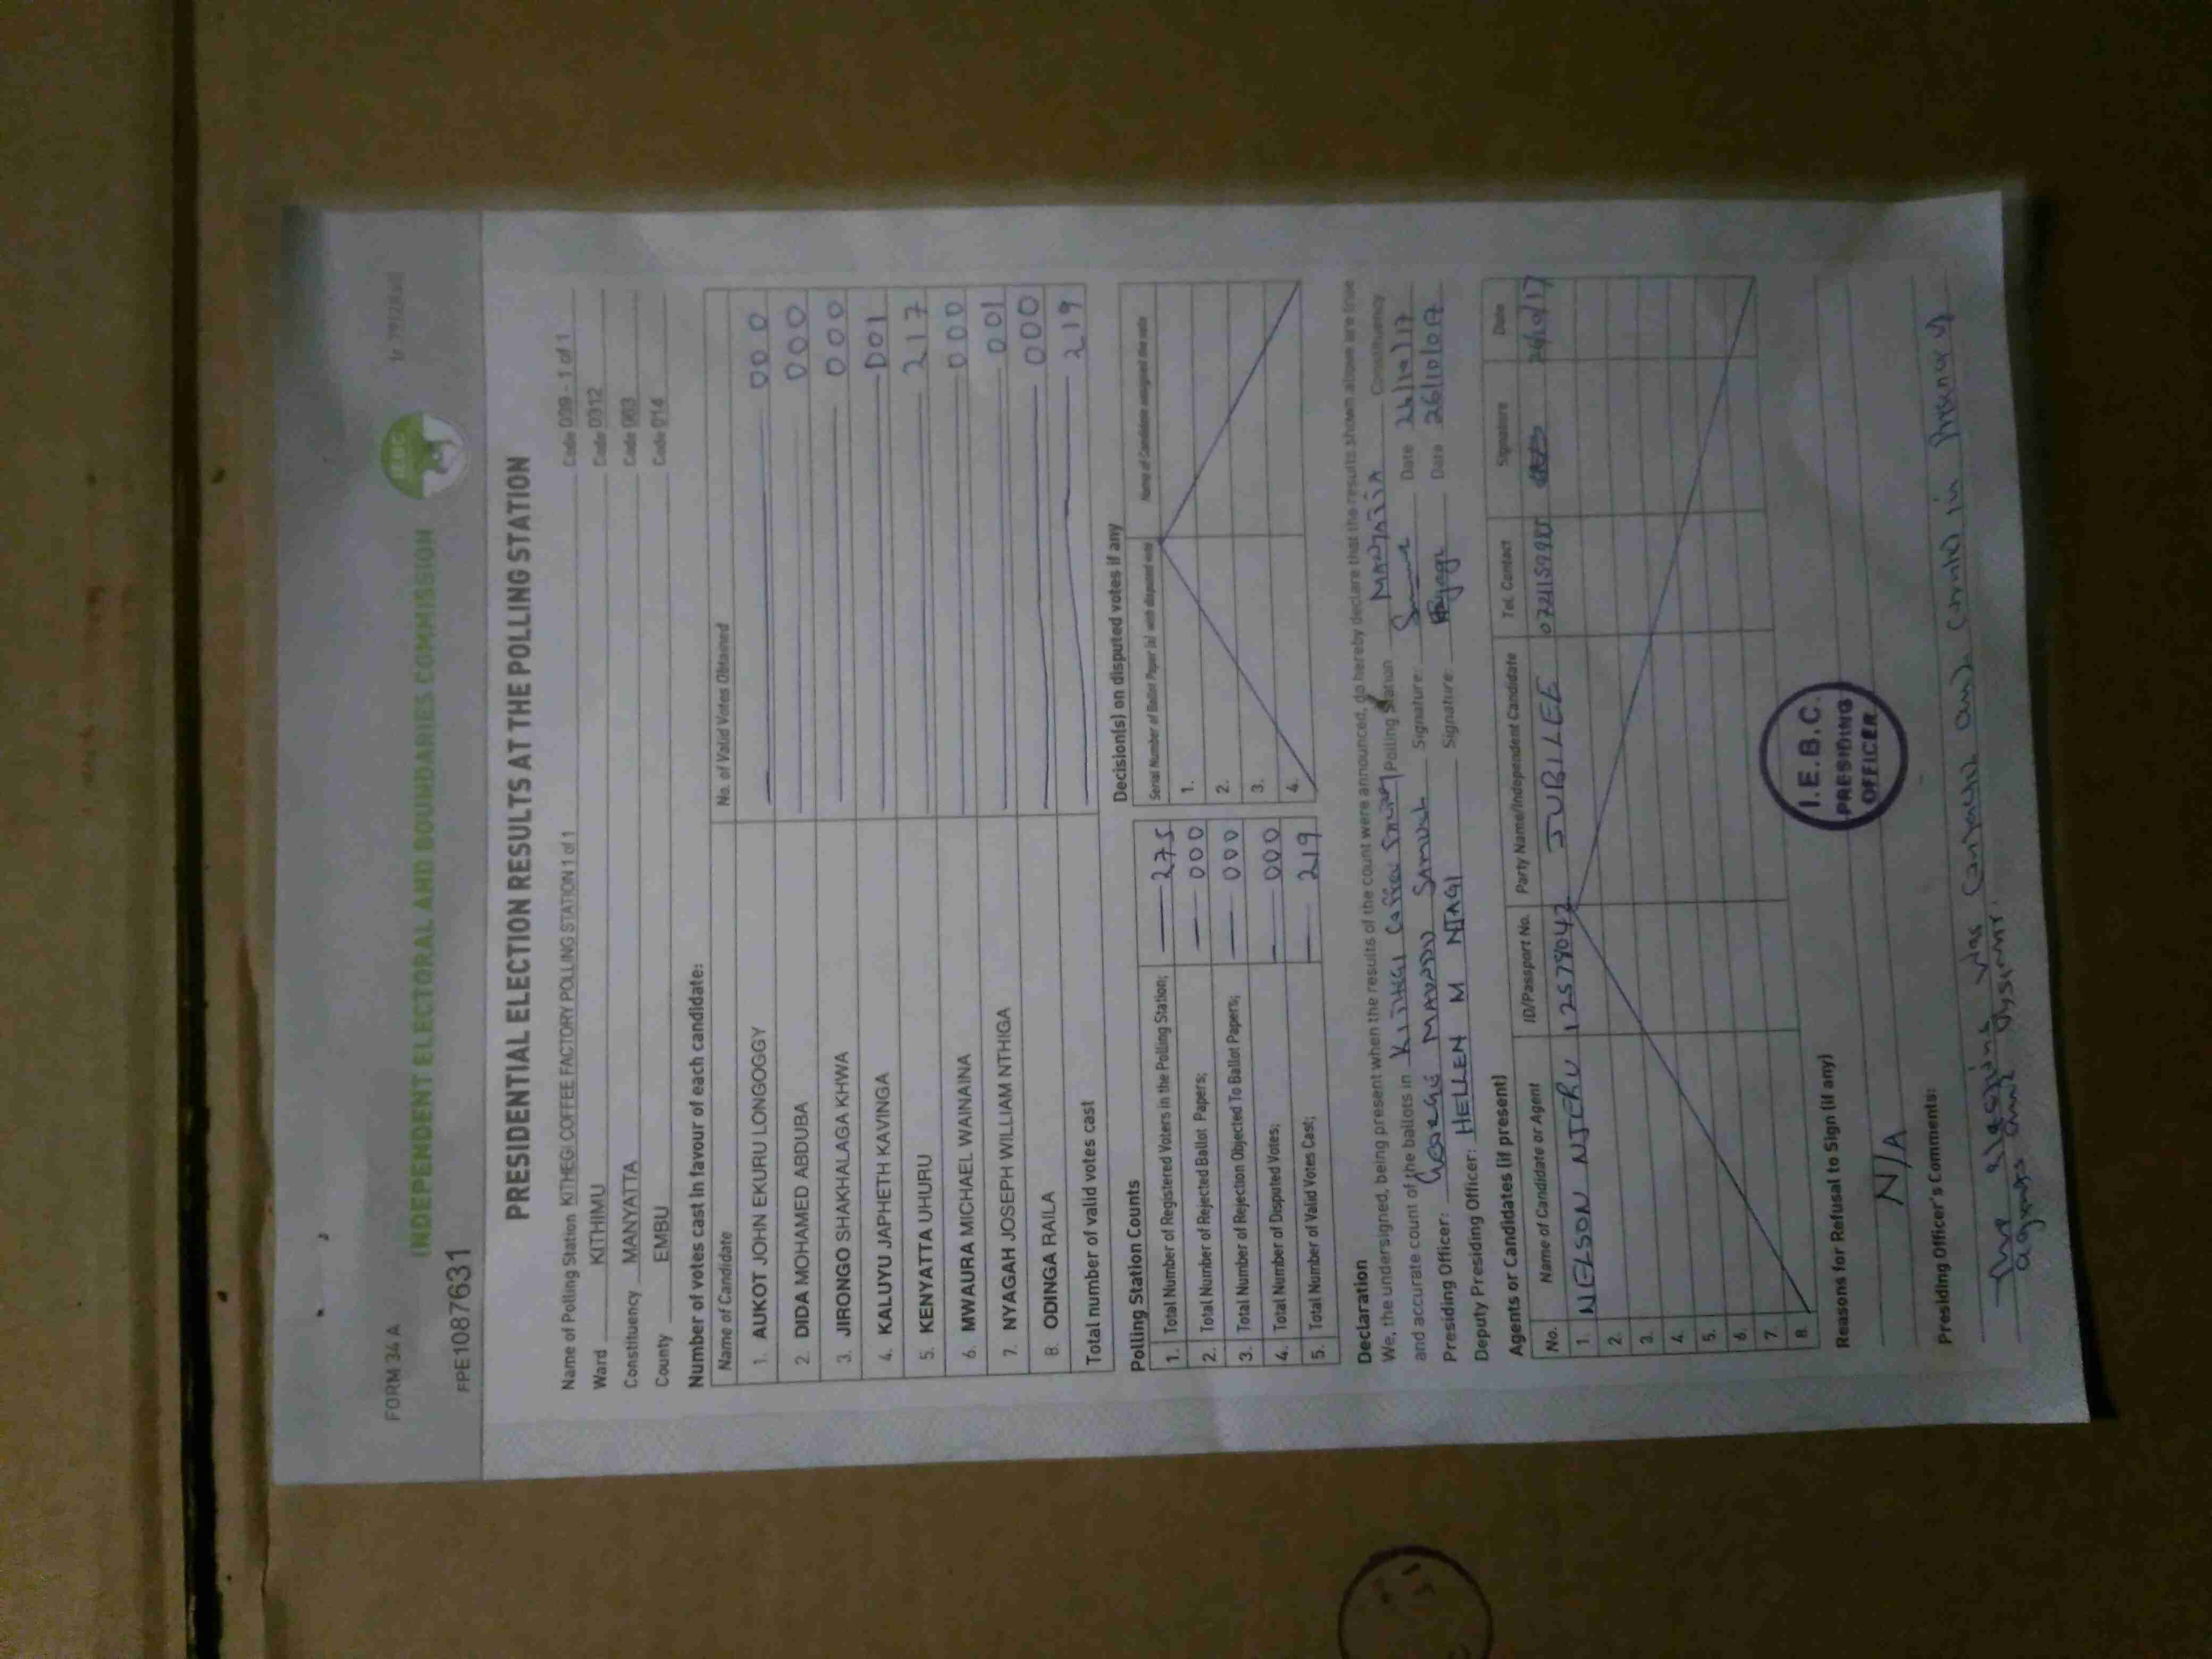 FORM 34 A
INDEPENDENT ELECTORAL AND BOUNDARIES COMMISSION
IEBC
FPE1087631
PRESIDENTIAL ELECTION RESULTS AT THE POLLING STATION
Name of Polling Station KITHEGI COFFEE FACTORY POLLING STATION 1 of 1 Code 039 - 1 of 1
Ward KITHIMU Code 0312
Constituency MANYATTA Code 063
County EMBU Code 014
Number of votes cast in favour of each candidate:
Name of Candidate No. of Valid Votes Obtained
1. AUKOT JOHN EKURU LONGOGGY 000
2. DIDA MOHAMED ABDUBA 000
3. JIRONGO SHAKHALAGA KHWA 000
4. KALUYU JAPHETH KAVINGA 001
5. KENYATTA UHURU 217
6. MWAURA MICHAEL WAINAINA 000
7. NYAGAH JOSEPH WILLIAM NTHIGA 001
8. ODINGA RAILA 000
Total number of valid votes cast 219
Polling Station Counts
1. Total Number of Registered Voters in the Polling Station; 275
2. Total Number of Rejected Ballot Papers; 000
3. Total Number of Rejection Objected To Ballot Papers; 000
4. Total Number of Disputed Votes; 000
5. Total Number of Valid Votes Cast; 219
Decision(s) on disputed votes if any
Serial Number of Ballot Paper (s) with disputed vote Name of Candidate assigned the vote
1.
2.
3.
4.
Declaration
We, the undersigned, being present when the results of the count were announced, do hereby declare that the results shown above are true
and accurate count of the ballots in KITHEGI Coffee Factory Polling Station MANYATTA Constituency
Presiding Officer: George Samuel Signature: Date 26/10/17
Deputy Presiding Officer: HELLEN M NJAGI Signature: Date 26/10/017
Agents or Candidates (if present)
No. Name of Candidate or Agent ID/Passport No. Party Name/Independent Candidate Tel. Contact Signature Date
1. NELSON NJERU 12578042 JUBILEE 26/10/17
2.
3.
4.
5.
6.
7.
8.
Reasons for Refusal to Sign (if any)
N/A
I.E.B.C.
PRESIDING
OFFICER
Presiding Officer's Comments:
The was and in presence of
agents and